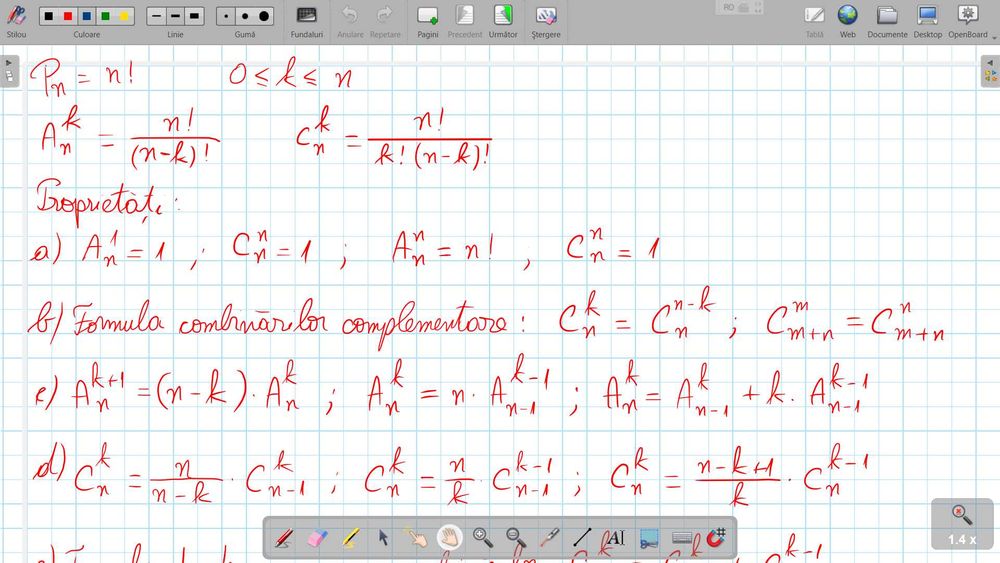 RO
Stilou Culoare Linie Gumă Fundaluri Anulare Repetare Pagini Precedent Următor Ștergere Tablă Web Documente Desktop OpenBoard
Pₙ = n! 0 ≤ k ≤ n
Aₙᵏ = n!/(n-k)! Cₙᵏ = n!/(k!(n-k)!)
Proprietăți:
a) Aₙ¹ = 1 ; Cₙⁿ = 1 ; Aₙⁿ = n! , Cₙⁿ = 1
b) Formula combinărilor complementare: Cₙᵏ = Cₙⁿ⁻ᵏ ; Cₘ₊ₙᵐ = Cₘ₊ₙⁿ
c) Aₙᵏ⁺¹ = (n-k)·Aₙᵏ ; Aₙᵏ = n·Aₙ₋₁ᵏ⁻¹ ; Aₙᵏ = Aₙ₋₁ᵏ + k·Aₙ₋₁ᵏ⁻¹
d) Cₙᵏ = n/(n-k)·Cₙ₋₁ᵏ ; Cₙᵏ = n/k·Cₙ₋₁ᵏ⁻¹ ; Cₙᵏ = (n-k+1)/k·Cₙᵏ⁻¹
1.4 x